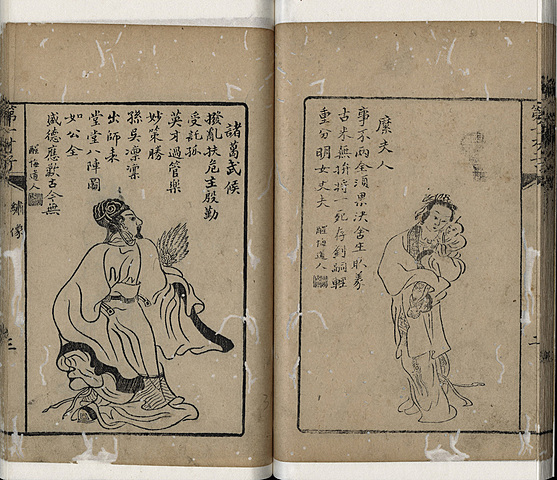 糜夫人
事不兩全須果決舍生取義
古來無拚將一死存劉嗣輕
重分明女丈夫
醒悔道人
二
諸葛武侯
撥亂扶危主殷勤
受託孤
英才過管樂
妙策勝
孫吳凜凜
出師表
堂堂八陣圖
如公全
盛德應歎古今無
醒悔道人
繡像
三